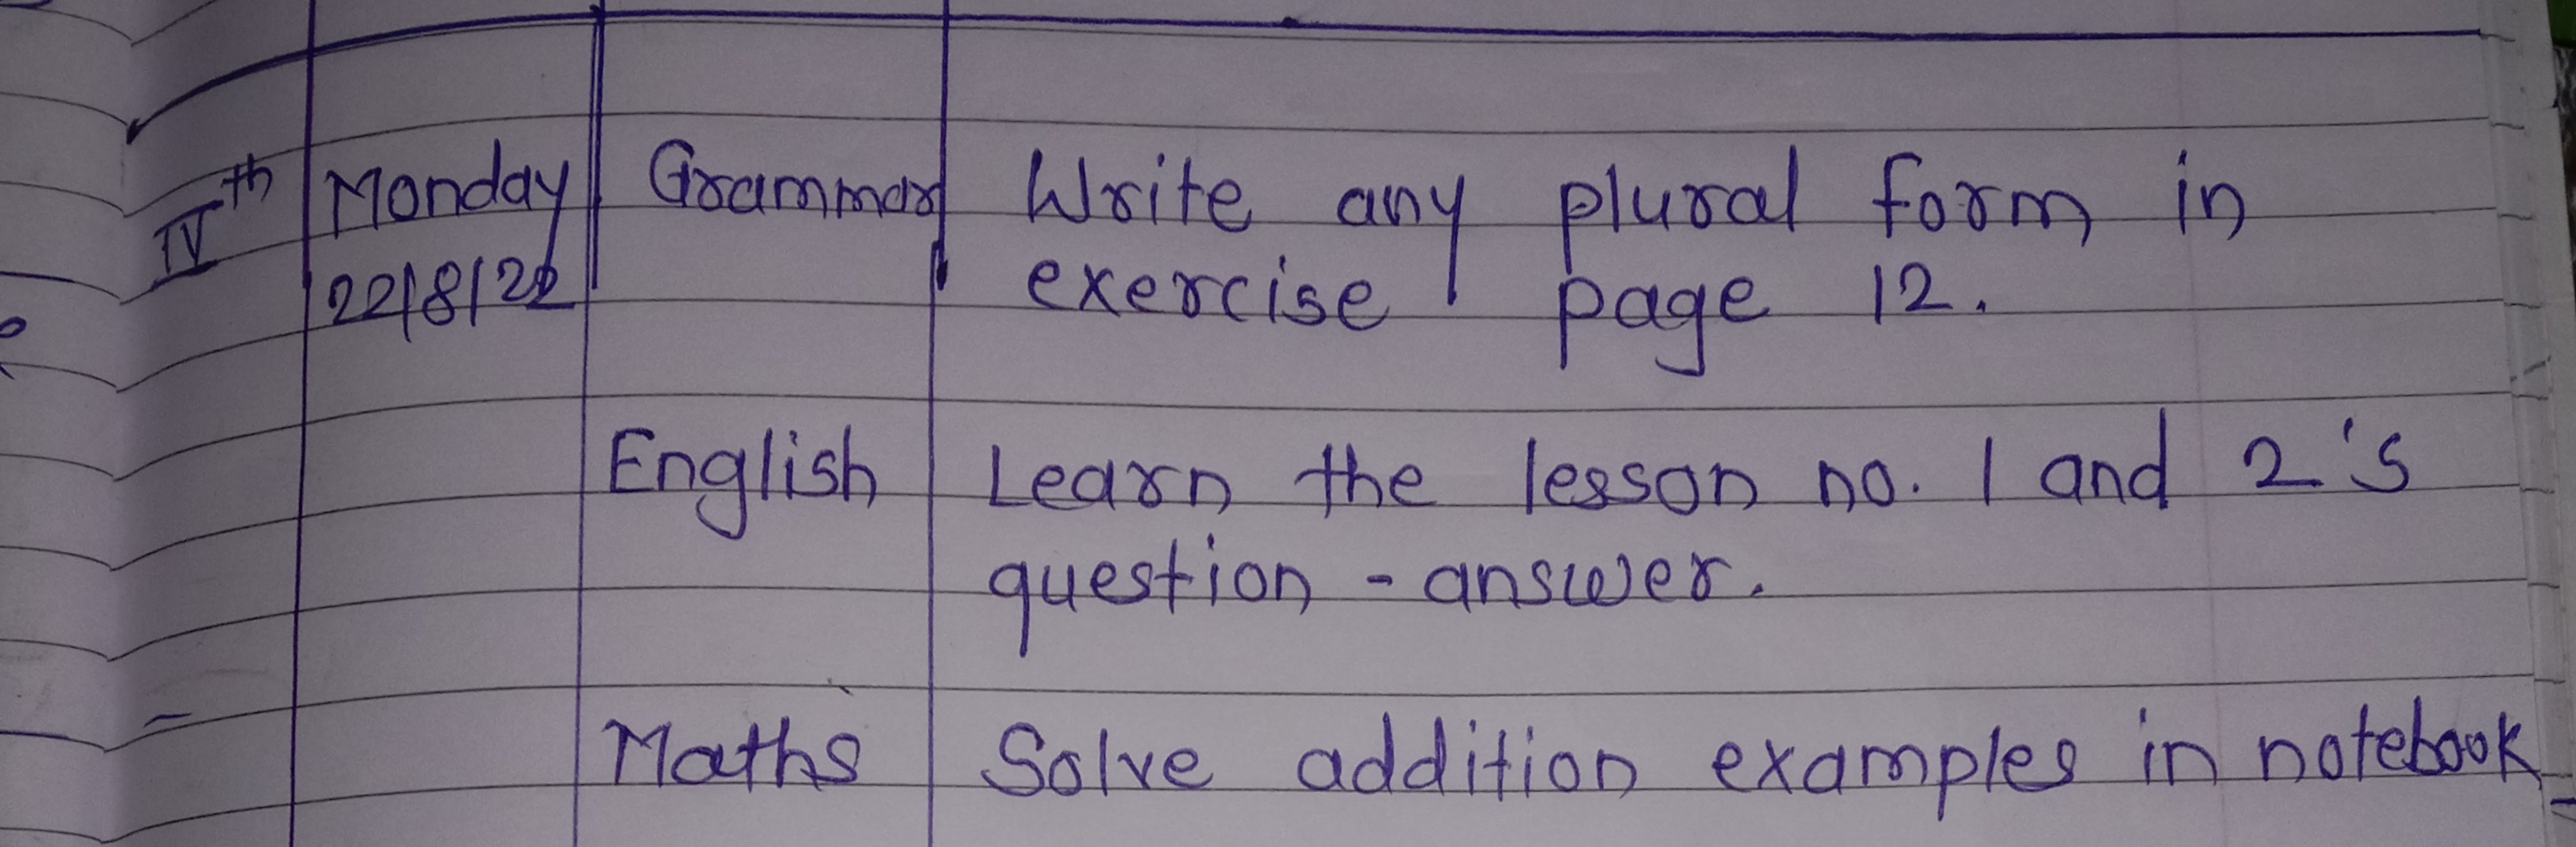 IVth Monday Grammar Write any plural form in
22/8/22 exercise page 12.
English Learn the lesson no. 1 and 2's
question - answer.
Maths Solve addition examples in notebook